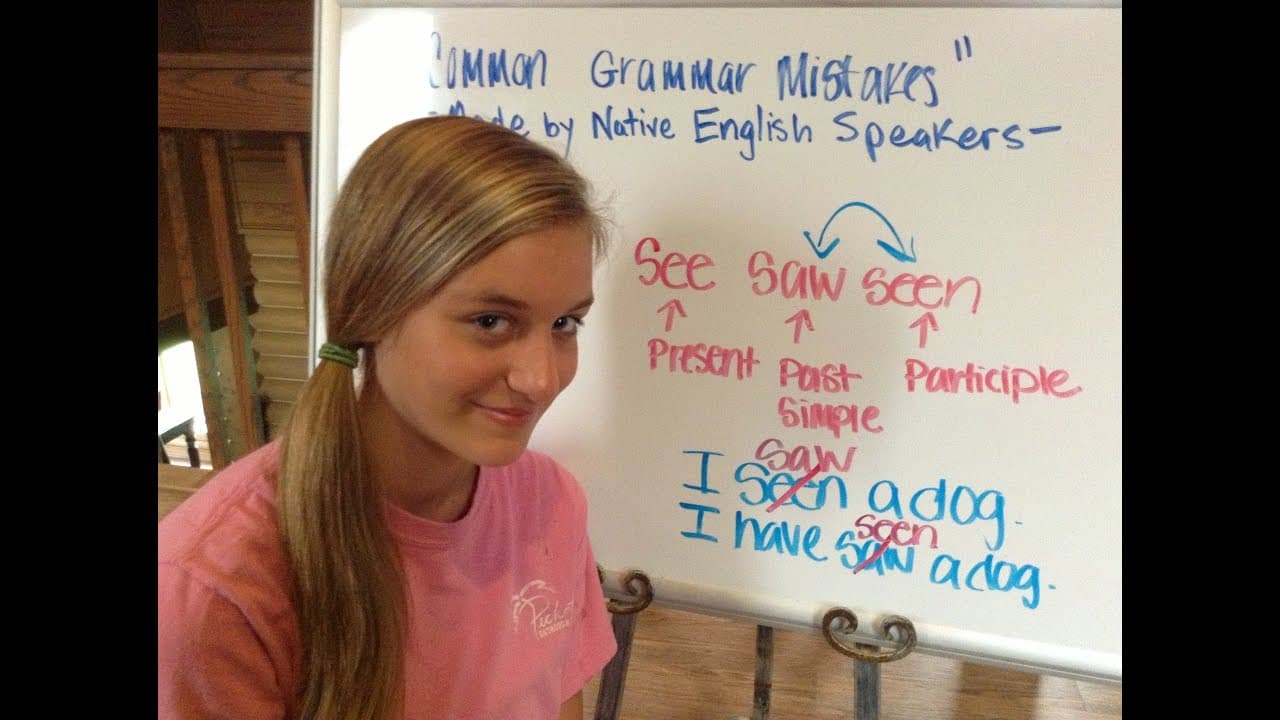 Common Grammar Mistakes"
-Made by Native English Speakers-
See Saw Seen
Present Past Participle
Simple
Saw
I Seen a dog.
seen
I have saw a dog.